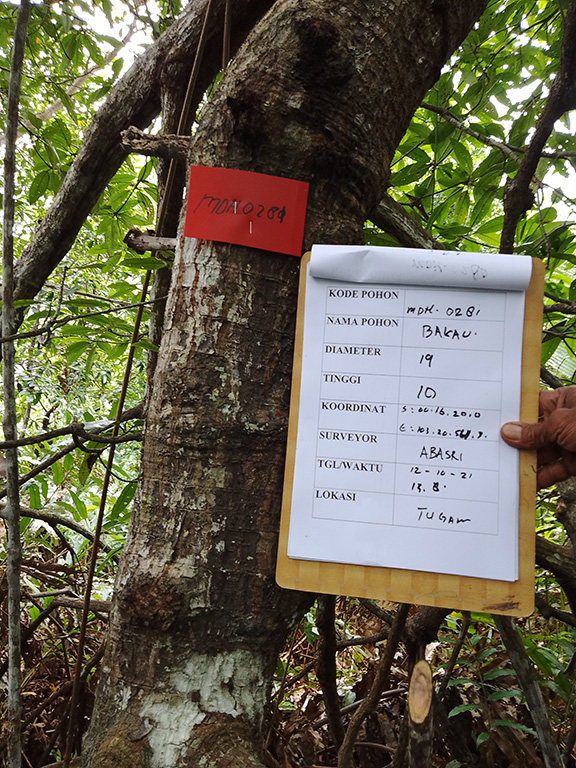 MDH0281
1
KODE POHON MDH. 0281
NAMA POHON BAKAU.
DIAMETER 19
TINGGI 10
KOORDINAT S: 00.16.20.0
E: 103.20.
SURVEYOR ABASRI
TGL/WAKTU 12-10-21
13.8.
LOKASI